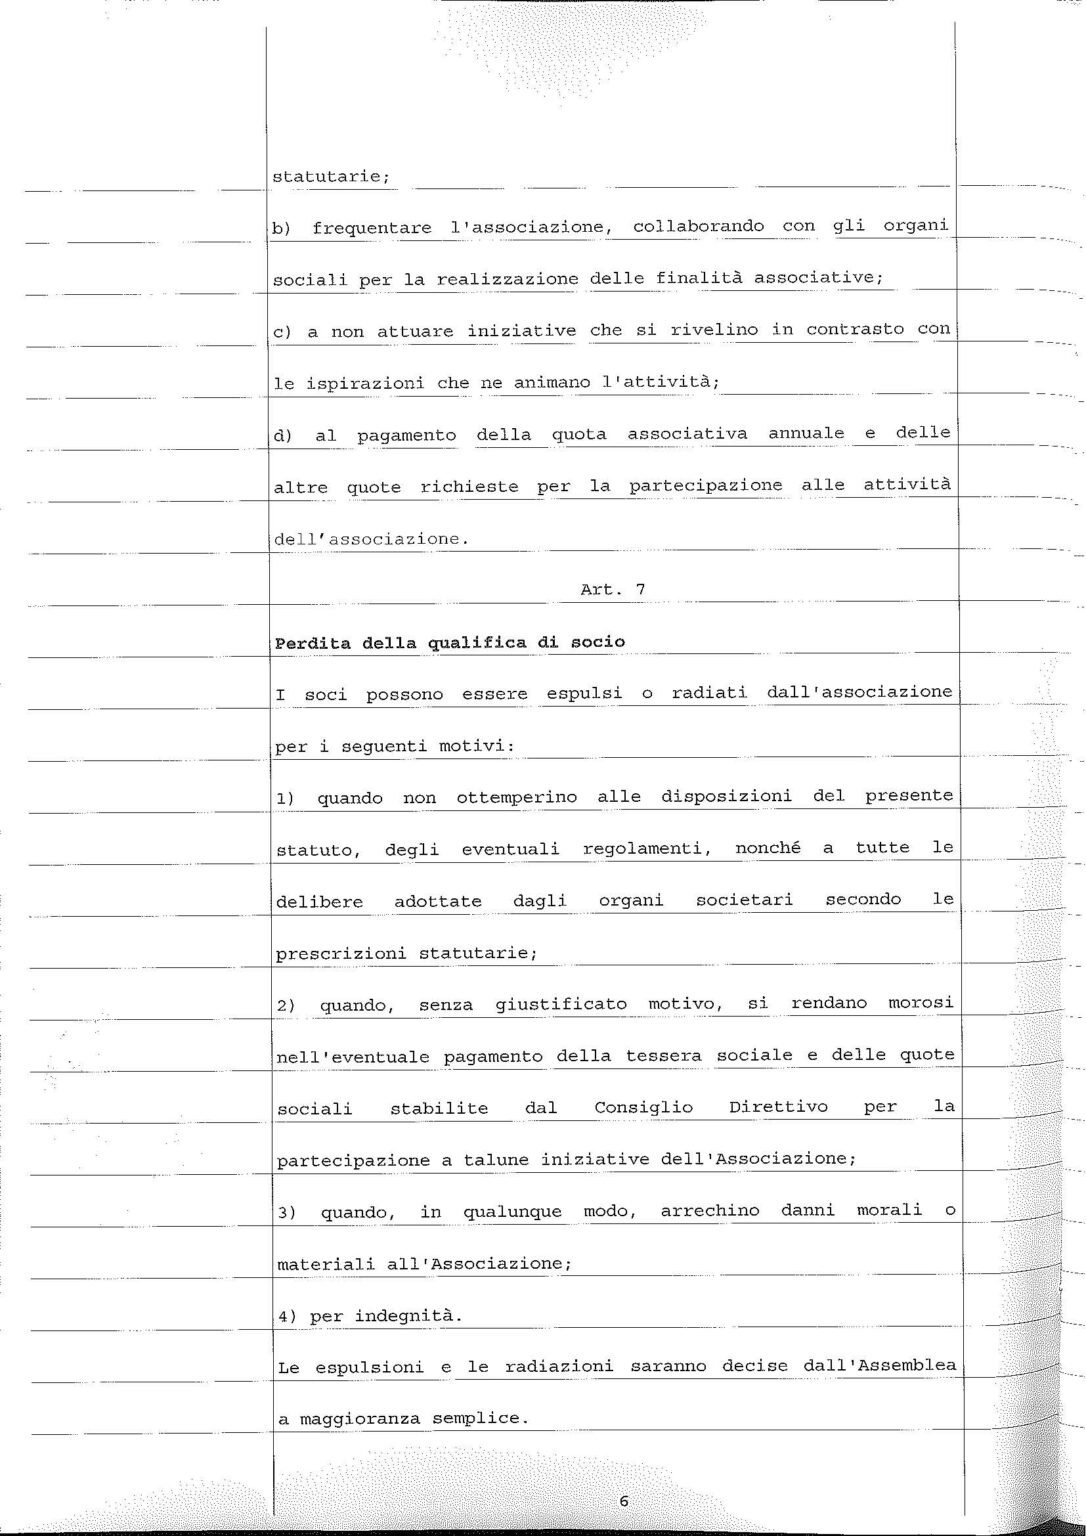 statutarie;
b) frequentare l'associazione, collaborando con gli organi
sociali per la realizzazione delle finalità associative;
c) a non attuare iniziative che si rivelino in contrasto con
le ispirazioni che ne animano l'attività;
d) al pagamento della quota associativa annuale e delle
altre quote richieste per la partecipazione alle attività
dell'associazione.
Art. 7
Perdita della qualifica di socio
I soci possono essere espulsi o radiati dall'associazione
per i seguenti motivi:
1) quando non ottemperino alle disposizioni del presente
statuto, degli eventuali regolamenti, nonché a tutte le
delibere adottate dagli organi societari secondo le
prescrizioni statutarie;
2) quando, senza giustificato motivo, si rendano morosi
nell'eventuale pagamento della tessera sociale e delle quote
sociali stabilite dal Consiglio Direttivo per la
partecipazione a talune iniziative dell'Associazione;
3) quando, in qualunque modo, arrechino danni morali o
materiali all'Associazione;
4) per indegnità.
Le espulsioni e le radiazioni saranno decise dall'Assemblea
a maggioranza semplice.
6